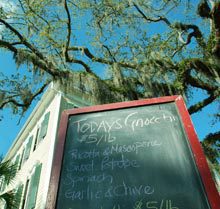 TODAYS Gnocchi
$5/lb
Ricotta & Mascarpone
Sweet Potatoe
Spinach
Garlic & Chive
$5/lb